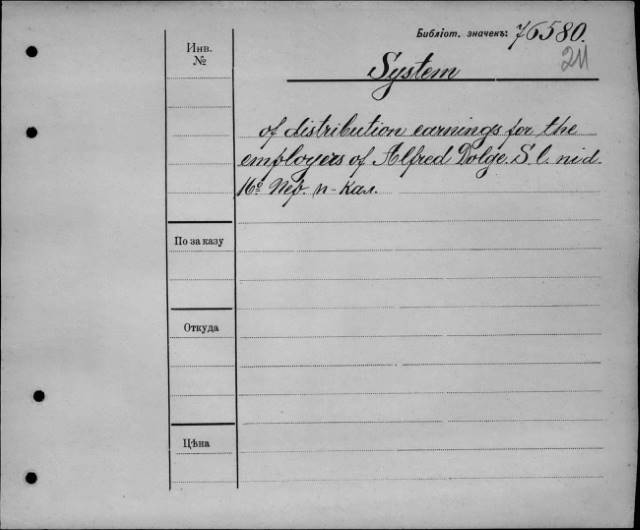 Библіот. значекъ: 76580.
211
Инв.
№
System
of distribution earnings for the
employers of Alfred Dolge. S. l. ni d.
16º Пер. п-кал.
По заказу
Откуда
Цѣна